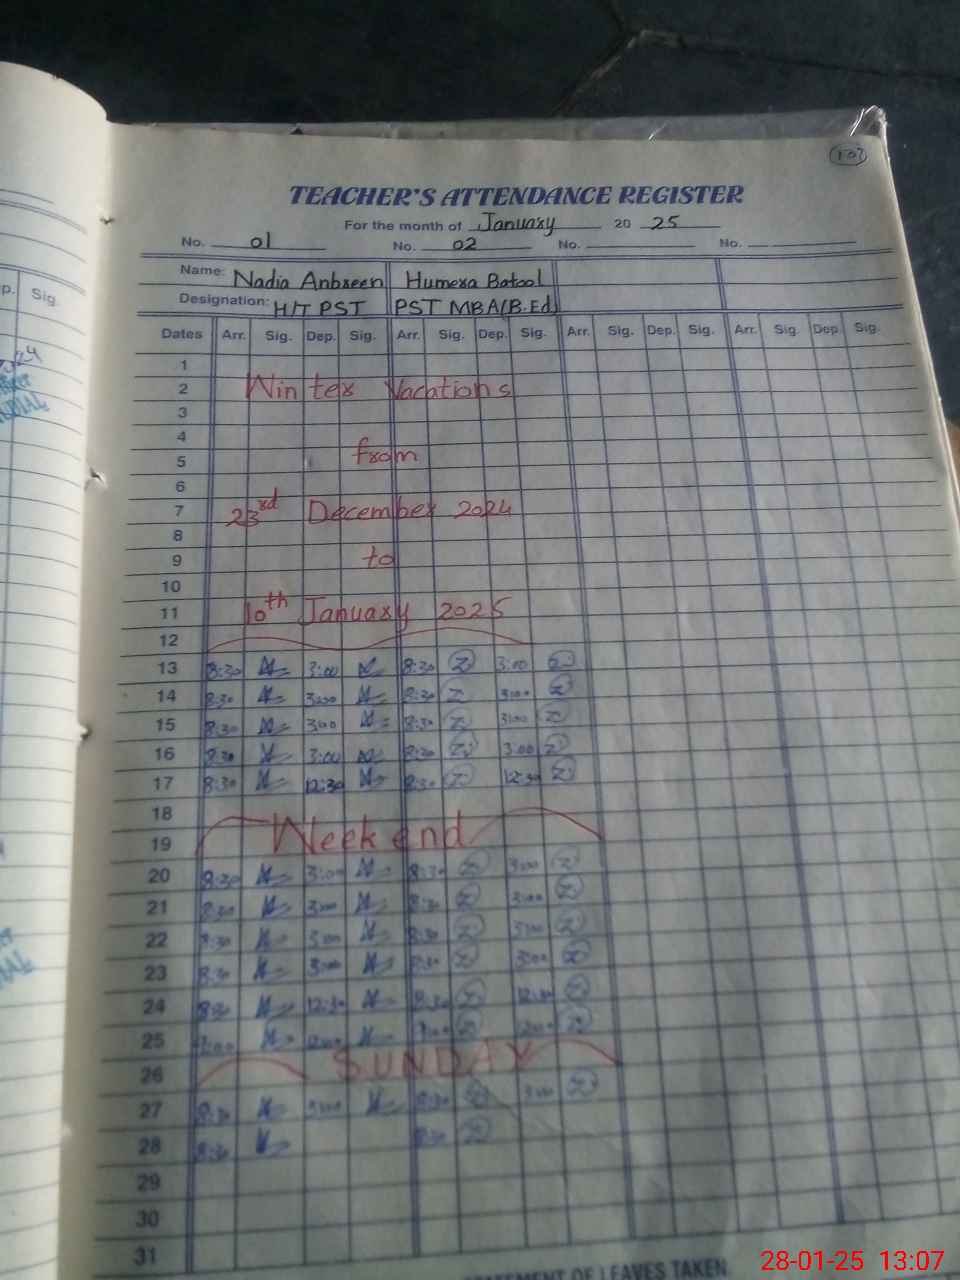 107
TEACHER'S ATTENDANCE REGISTER
For the month of January 20 25
No. 01 No. 02 No. No.
Name: Nadia Anbreen Humera Batool
Designation: H/T PST PST MBA(B.Ed)
p. Sig.
Dates Arr. Sig. Dep. Sig. Arr. Sig. Dep. Sig. Arr. Sig. Dep. Sig. Arr. Sig. Dep Sig.
1
2 Winter Vacations
3
4
5 from
6
7 23rd December 2024
8
9 to
10
11 10th January 2025
12
13 8:30 3:00 8:30 3:00
14 8:30 3:00 8:30 3:00
15 8:30 3:00 8:30 3:00
16 8:30 3:00 8:30 3:00
17 8:30 12:30 8:30 12:30
18
19 Weekend
20 8:30 3:00 8:30 3:00
21 8:30 3:00 8:30 3:00
22 8:30 3:00 8:30 3:00
23 8:30 3:00 8:30 3:00
24 8:30 12:30 8:30 12:30
25 9:00 12:00 9:00 12:00
26 SUNDAY
27 8:30 3:00 8:30 3:00
28 8:30 8:30
29
30
31
STATEMENT OF LEAVES TAKEN
28-01-25 13:07